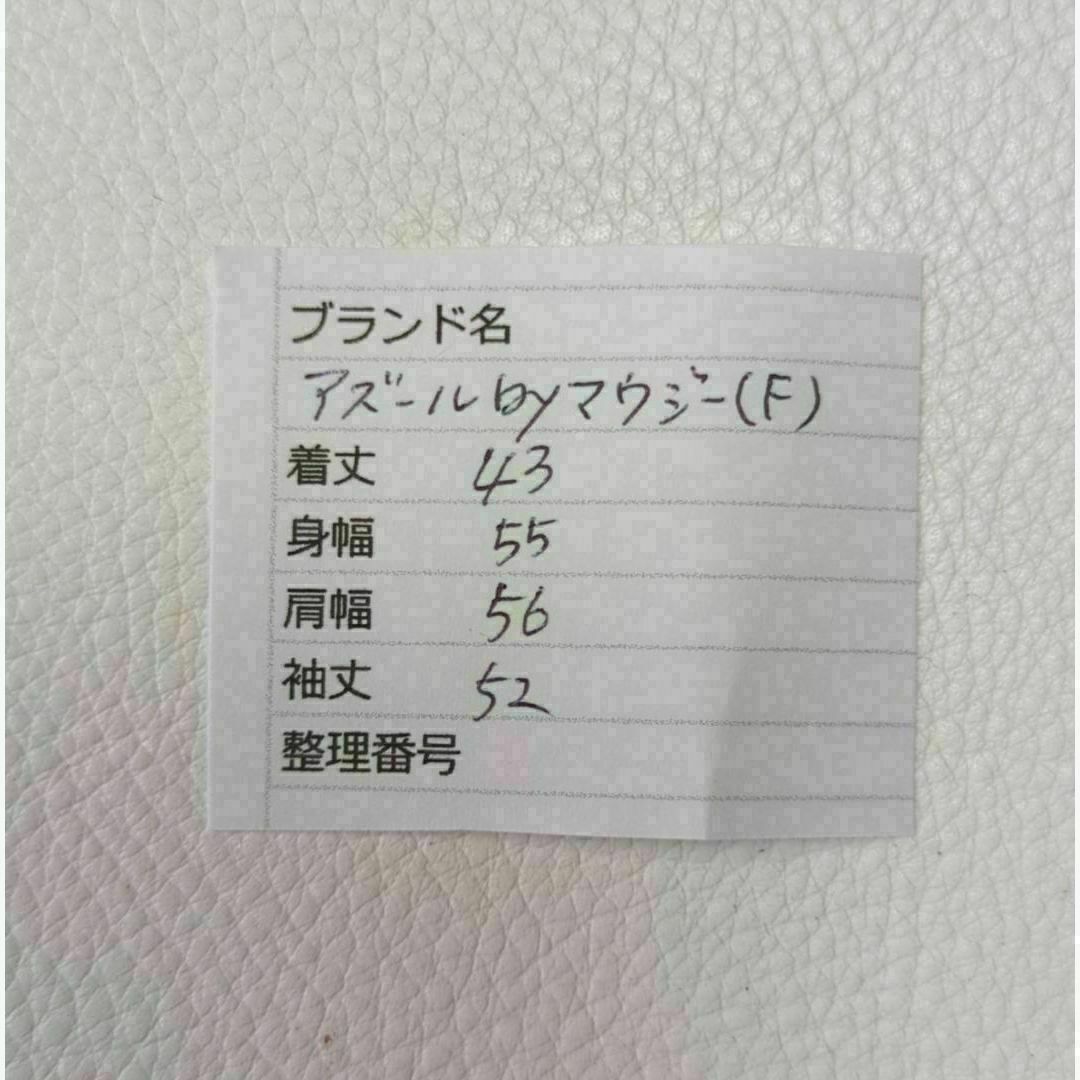 ブランド名
アズールbyマウジー(F)
着丈 43
身幅 55
肩幅 56
袖丈 52
整理番号